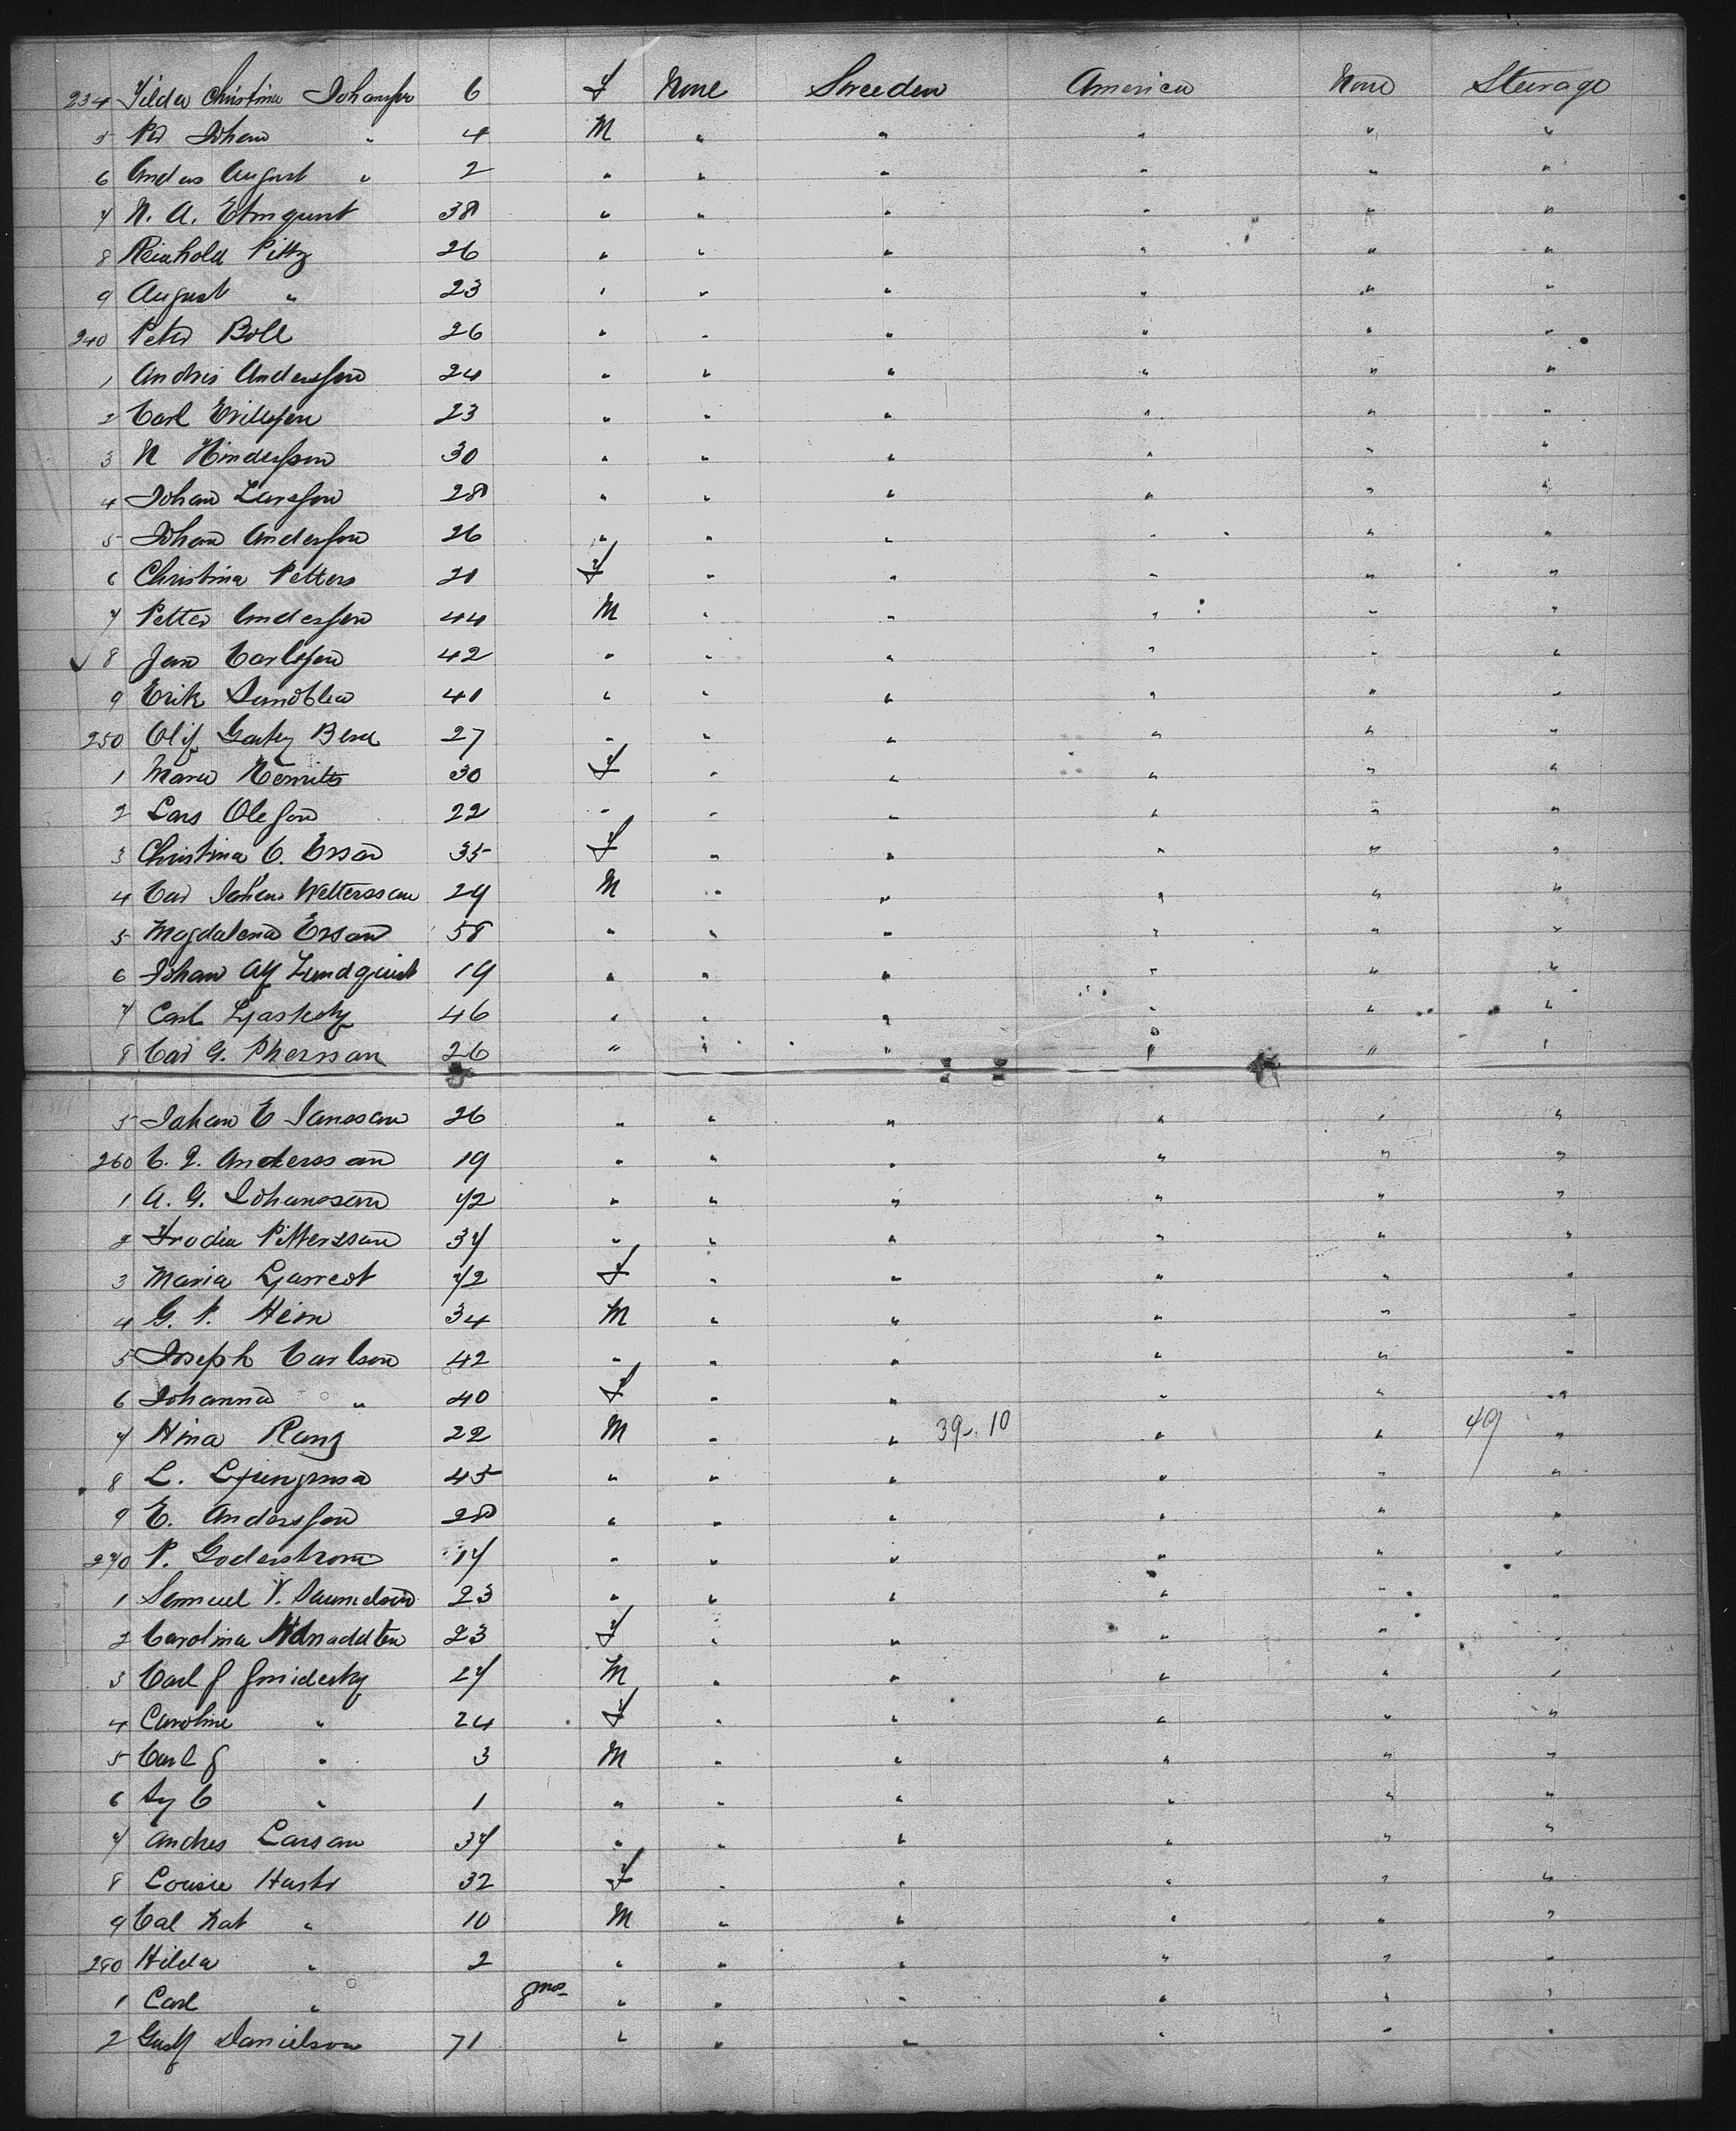 234 Tilda Christina Johansson 6 F None Sweeden America None Steerage
5 Per Johan " 4 M " " " " "
6 Andus August " 2 " " " " " "
7 N. A. Elmquist 38 " " " " " "
8 Reinhold Piltz 26 " " " " " "
9 August " 23 " " " " " "
240 Peter Boll 26 " " " " " "
1 Andris Andersson 24 " " " " " "
2 Carl Erillsson 23 " " " " " "
3 N Hindersson 30 " " " " " "
4 Johan Larsson 28 " " " " " "
5 Johan Andersson 26 " " " " " "
6 Christina Petters 21 F " " " " "
7 Petter Andersson 44 M " " " " "
8 Jan Carlsson 42 " " " " " "
9 Erik Sundblad 41 " " " " " "
250 Olif 27 " " " " " "
1 Maria 30 F " " " " "
2 Lars Olesson 22 " " " " " "
3 Christina C. Ersan 35 F " " " " "
4 Car Johan Wetterssan 29 M " " " " "
5 Magdalena Ersan 58 " " " " " "
6 Johan Alf Lundquist 19 " " " " " "
7 Carl 46 " " " " " "
8 Car G. Pherssan 26 " " " " " "
5 Johan E Janssan 26 " " " " " "
260 C. J. Anderssan 19 " " " " " "
1 A. G. Johanssan 42 " " " " " "
2 Pitterssan 37 " " " " " "
3 Maria 42 F " " " " "
4 G. P. Heim 34 M " " " " "
5 Joseph Carlson 42 " " " " " "
6 Johanna " 40 F " " " " "
7 Hina Rang 22 M " " 39. 10 " " 49 "
8 L. 45 " " " " " "
9 E. Andersson 28 " " " " " "
270 P. Goderstrom 17 " " " " " "
1 Samuel P. 23 " " " " " "
2 Carolina 23 F " " " " "
3 Carl J 27 M " " " " "
4 Caroline " 24 F " " " " "
5 Carl J " 3 M " " " " "
6 C " 1 " " " " " "
7 Andres Larsan 37 " " " " " "
8 Lousie 32 F " " " " "
9 Cal " 10 M " " " " "
280 Hilda " 2 " " " " " "
1 Carl " mos " " " " " "
2 Gustf Danielson 71 " " " " " "